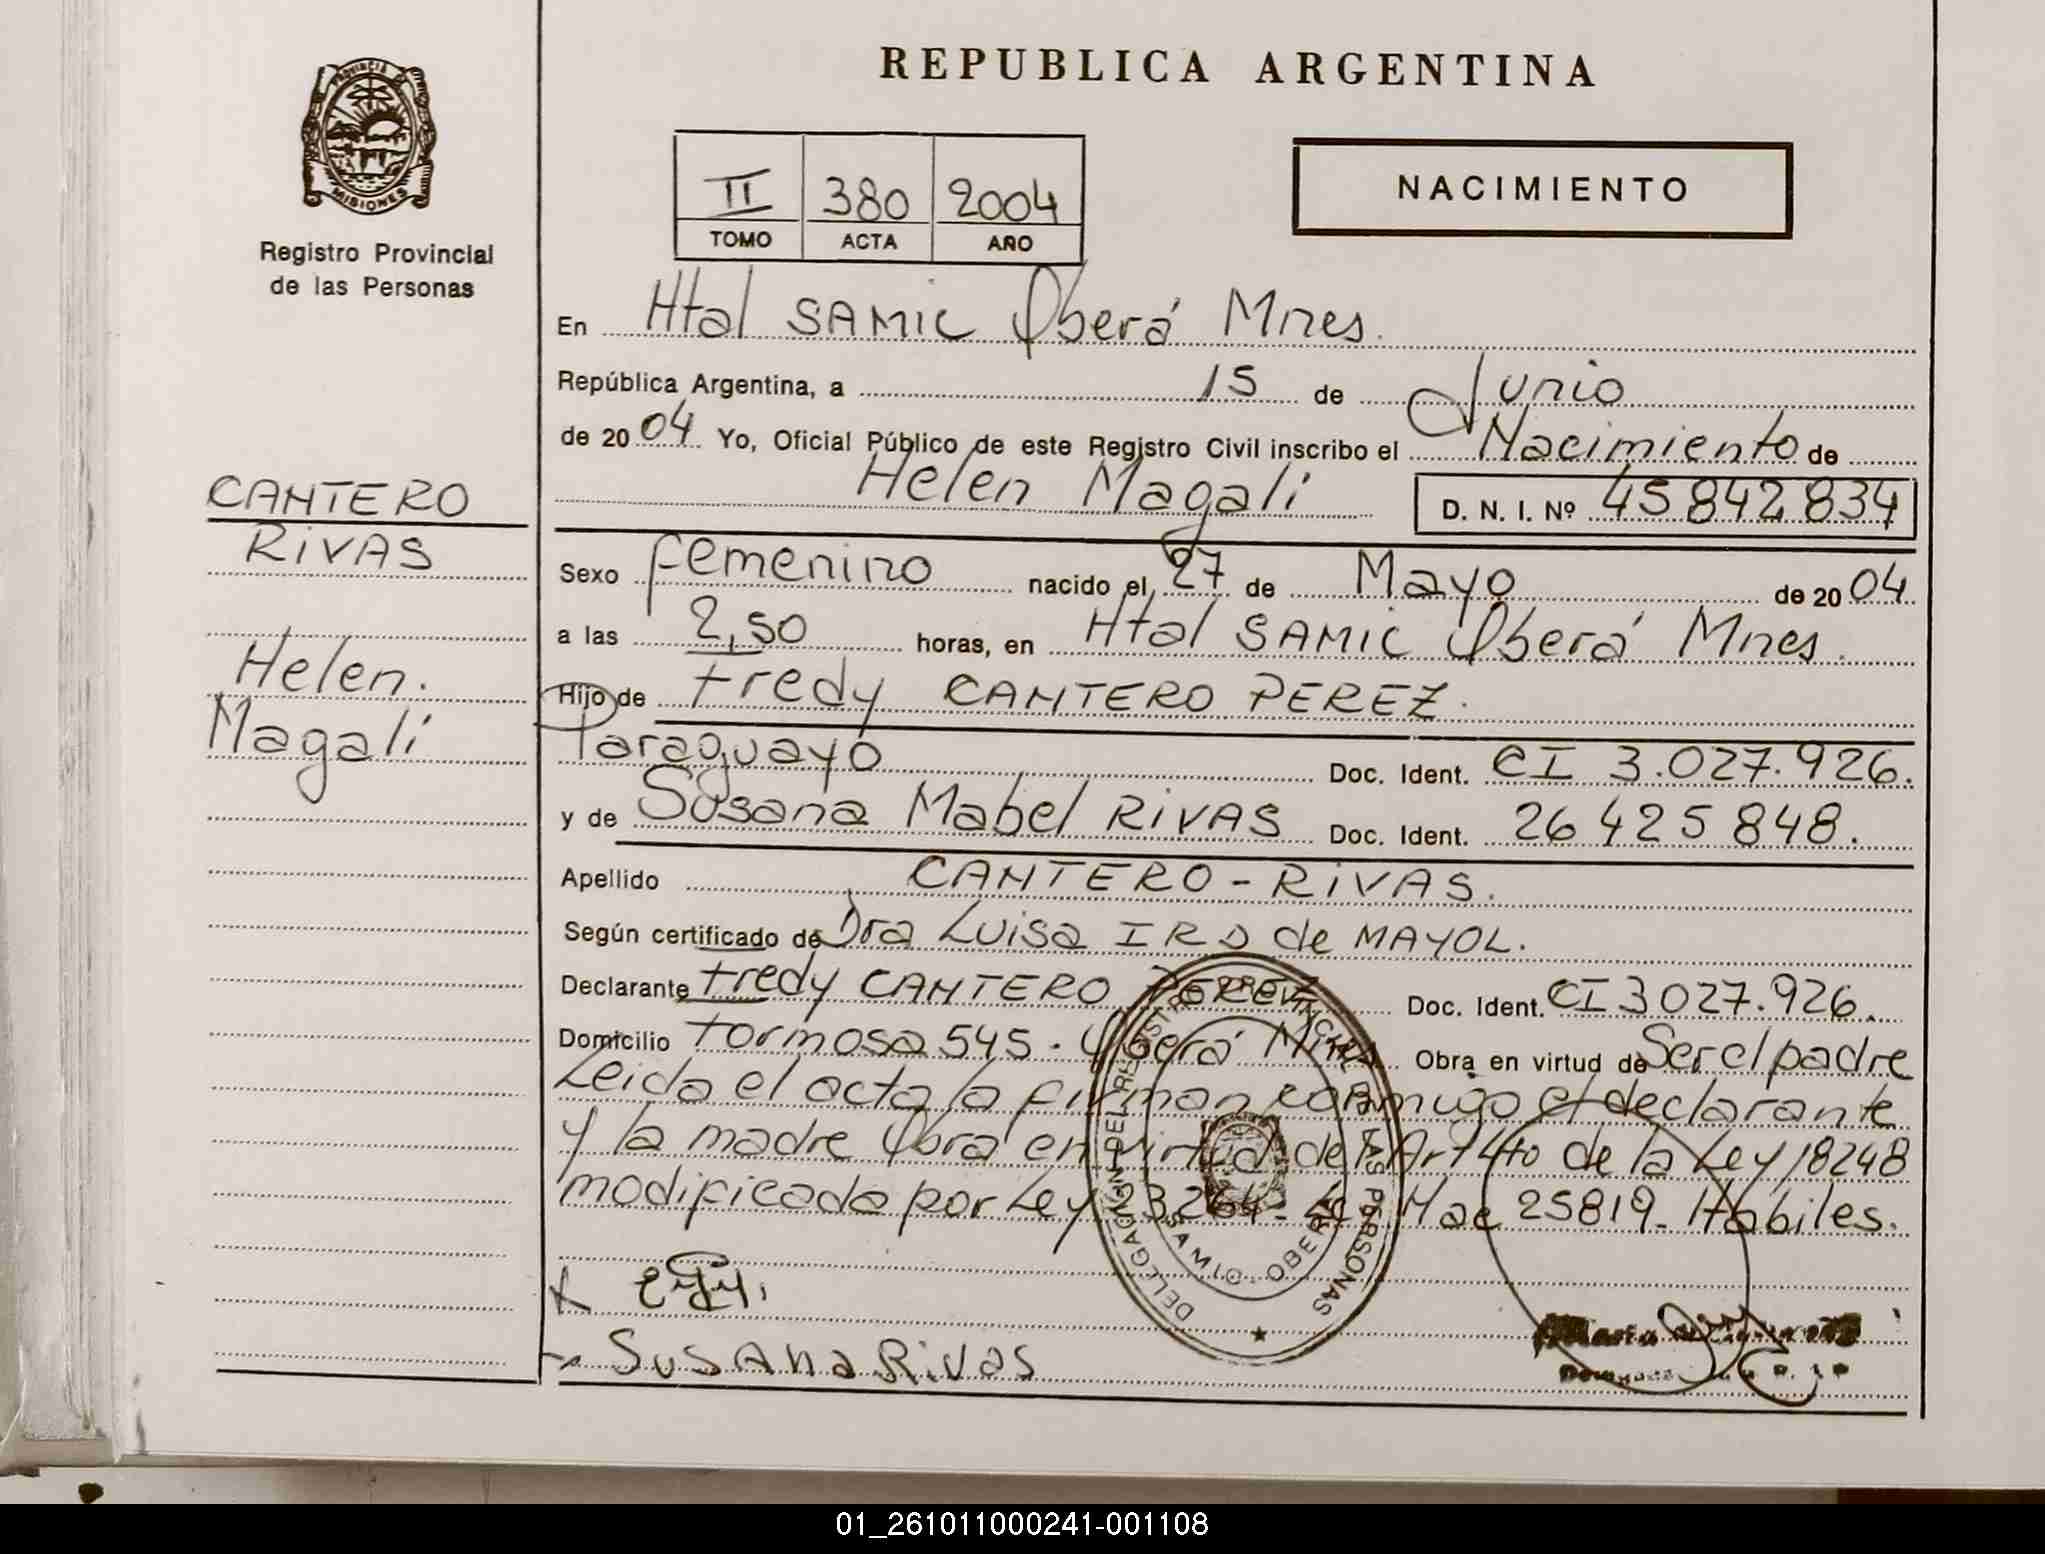 REPUBLICA ARGENTINA
PROVINCIA DE MISIONES
Registro Provincial
de las Personas
II 380 2004
TOMO ACTA AÑO
NACIMIENTO
En Htal SAMIC Oberá Mnes.
República Argentina, a 15 de Junio
de 2004 Yo, Oficial Público de este Registro Civil inscribo el Nacimiento de
Helen Magali D. N. I. Nº 45 842 834
CANTERO
RIVAS
Helen.
Magali
Sexo femenino nacido el 27 de Mayo de 2004
a las 2,50 horas, en Htal SAMIC Oberá Mnes.
Hijo de Fredy CANTERO PEREZ.
Paraguayo Doc. Ident. CI 3.027.926.
y de Susana Mabel RIVAS Doc. Ident. 26 425 848.
Apellido CANTERO - RIVAS.
Según certificado de Dra Luisa de MAYOL.
Declarante Fredy CANTERO PEREZ Doc. Ident. CI 3027.926.
Domicilio Formosa 545. Oberá Mnes Obra en virtud de Ser el padre
Leida el acta la firman conmigo el declarante
y la madre Obra en virtud del Art 4to de la Ley 18248
modificada por Ley 23264 - Mac 25819 - Habiles.
DELEGACION DEL REGISTRO PROVINCIAL DE LAS PERSONAS
SAMIC - OBERA
X
Susana Rivas
01_261011000241-001108